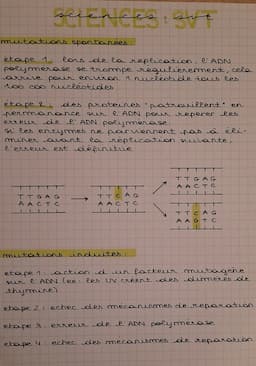 SCIENCES : SVT
mutations spontanées
étape 1 lors de la réplication, l'ADN
polymérase se trompe régulièrement, cela
arrive pour environ 1 nucléotide tous les
100 000 nucléotides
étape 2 des protéines "patrouillent" en
permanence sur l'ADN pour repérer les
erreur de l'ADN polymérase.
si les enzymes ne parviennent pas à éli-
miner avant la réplication suivante,
l'erreur est définitive
T T G A G
A A C T C
T T C A G
A A C T C
T T G A G
A A C T C
T T C A G
A A G T C
mutations induites
étape 1 : action d'un facteur mutagène
sur l'ADN (ex : les UV créent des dimères de
thymine)
étape 2 : échec des mécanismes de réparation
étape 3 : erreur de l'ADN polymérase
étape 4 : échec des mécanismes de réparation